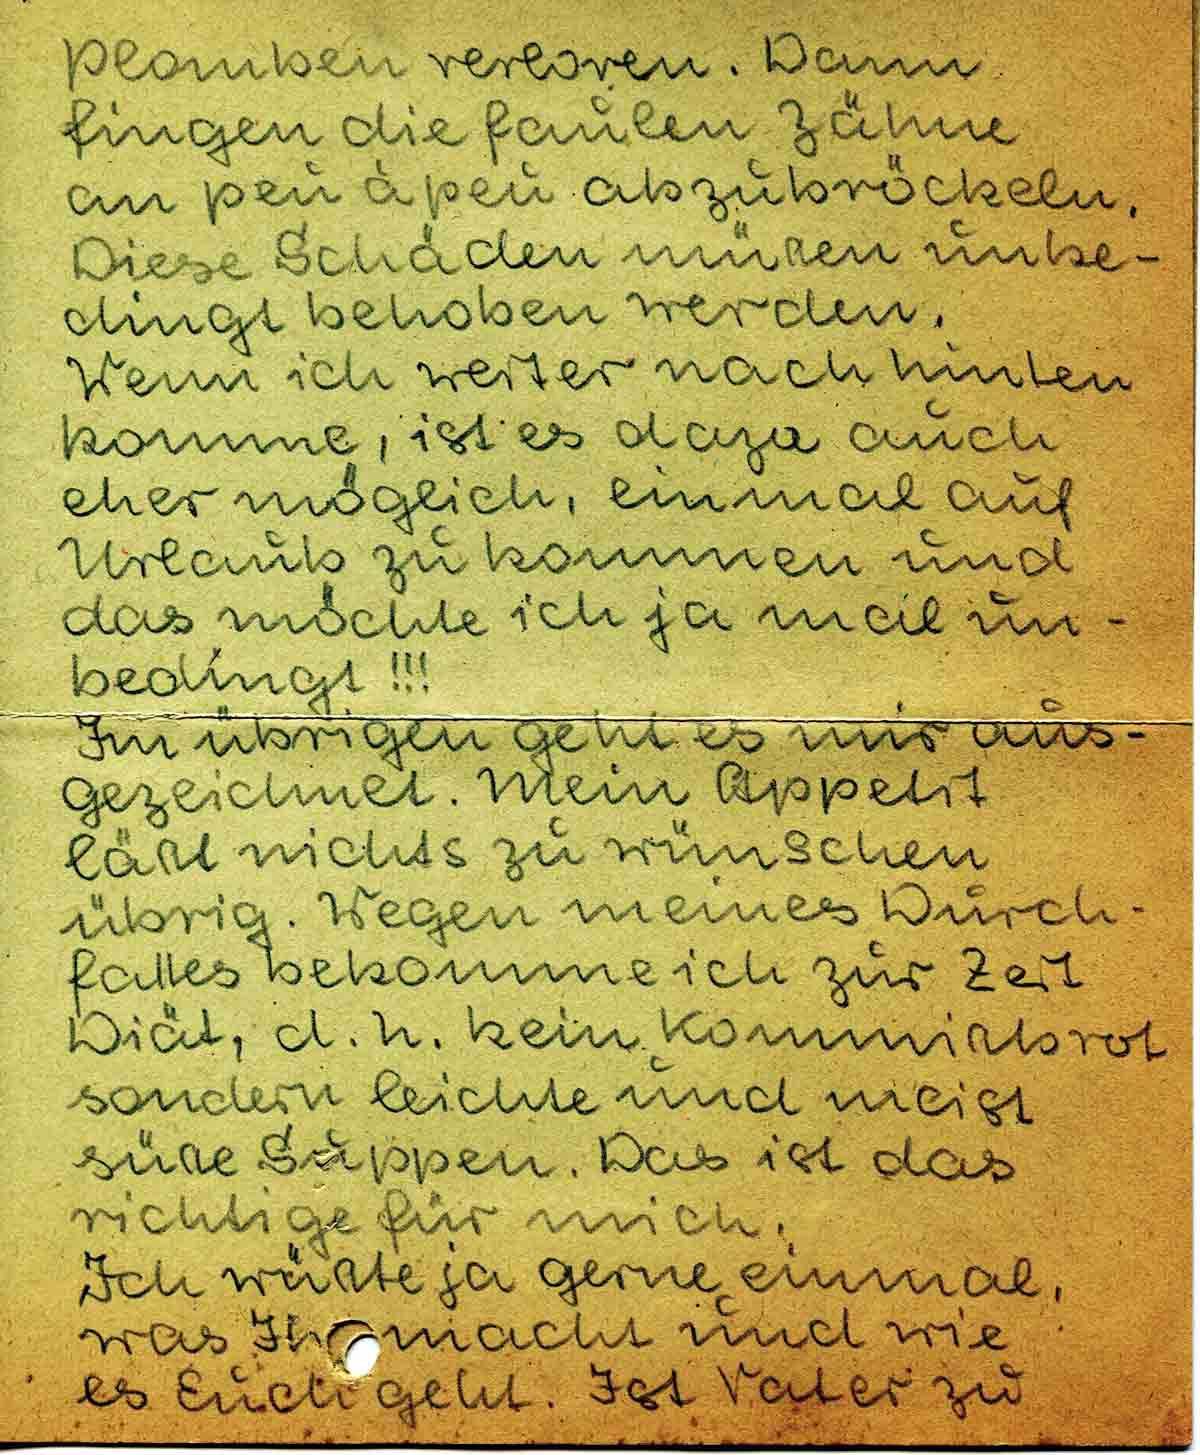 plomben verloren. Dann
fingen die faulen Zähne
an peu à peu abzubröckeln.
Diese Schäden müßen unbe-
dingt behoben werden.
Wenn ich weiter nach hinten
komme, ist es dazu auch
eher möglich, einmal auf
Urlaub zu kommen und
das möchte ich ja mal un-
bedingt !!!
Im übrigen geht es mir aus-
gezeichnet. Mein Appetit
läßt nichts zu wünschen
übrig. Wegen meines Durch-
falles bekomme ich zur Zeit
Diät, d. h. kein Kommißbrot
sondern leichte und meist
süße Suppen. Das ist das
richtige für mich.
Ich wüßte ja gerne einmal,
was Ihr macht und wie
es Euch geht. Ist Vater zu